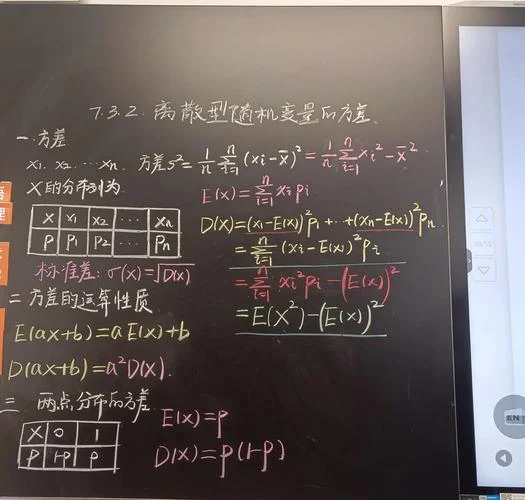 7.3.2.离散型随机变量的方差.
一.方差
x₁. x₂. ⋯xₙ. 方差s²=1/n ∑ᵢ₌₁ⁿ (xᵢ-x̄)²=1/n ∑ᵢ₌₁ⁿ xᵢ²-x̄²
X的分布列为.
X x₁ x₂ ⋯ xₙ
P P₁ P₂ ⋯ Pₙ
标准差: σ(X)=√D(X)
E(X)=∑ᵢ₌₁ⁿ xᵢpᵢ
D(X)=(x₁-E(X))²p₁+⋯+(xₙ-E(X))²pₙ.
=∑ᵢ₌₁ⁿ (xᵢ-E(X))²pᵢ
=∑ᵢ₌₁ⁿ xᵢ²pᵢ-(E(X))²
=E(X²)-(E(X))²
二.方差的运算性质
E(aX+b)=aE(X)+b
D(aX+b)=a²D(X).
三 两点分布的方差
X 0 1
P 1-P P
E(X)=p
D(X)=p(1-p)
10/15
EN